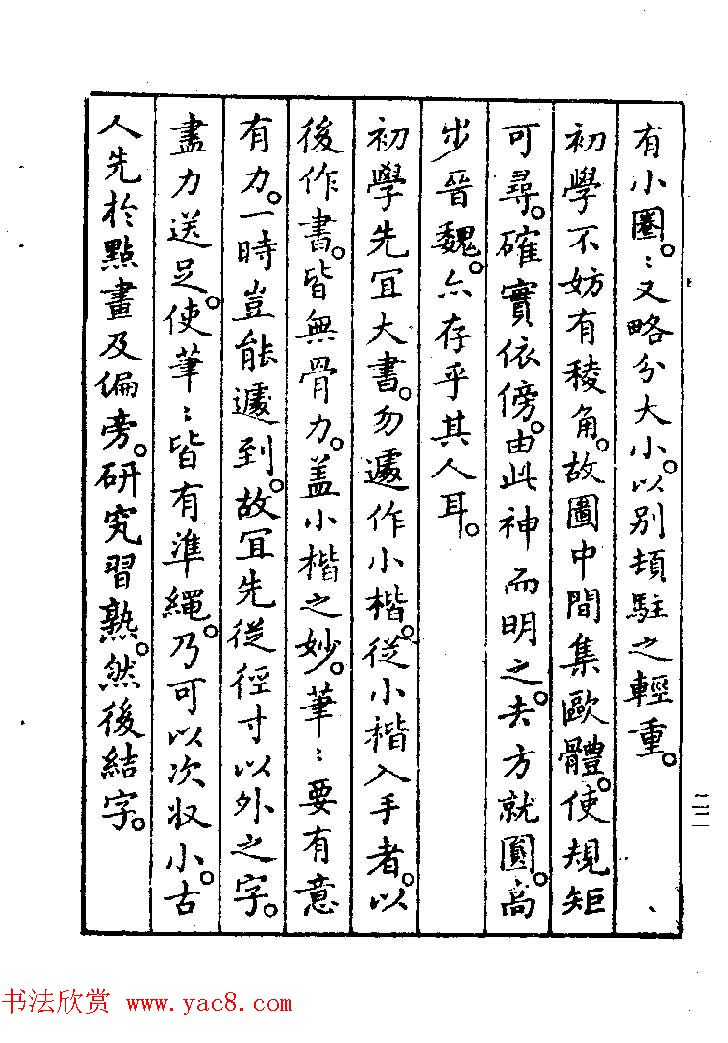 有小圈。：又略分大小。以别頓駐之輕重。、
初學不妨有稜角。故圖中間集歐體。使規矩
可尋。確實依傍。由此神而明之。去方就圓。高
步晉魏。亦存乎其人耳。
初學先冝大書。勿遽作小楷。從小楷入手者。以
後作書。皆無骨力。盖小楷之妙。筆：要有意
有力。一時豈能遽到。故冝先從徑寸以外之字。
盡力送足。使筆：皆有準繩。乃可以次収小。古
人先於點畫及偏旁。研究習熟。然後結字。
二二
书法欣赏 www.yac8.com